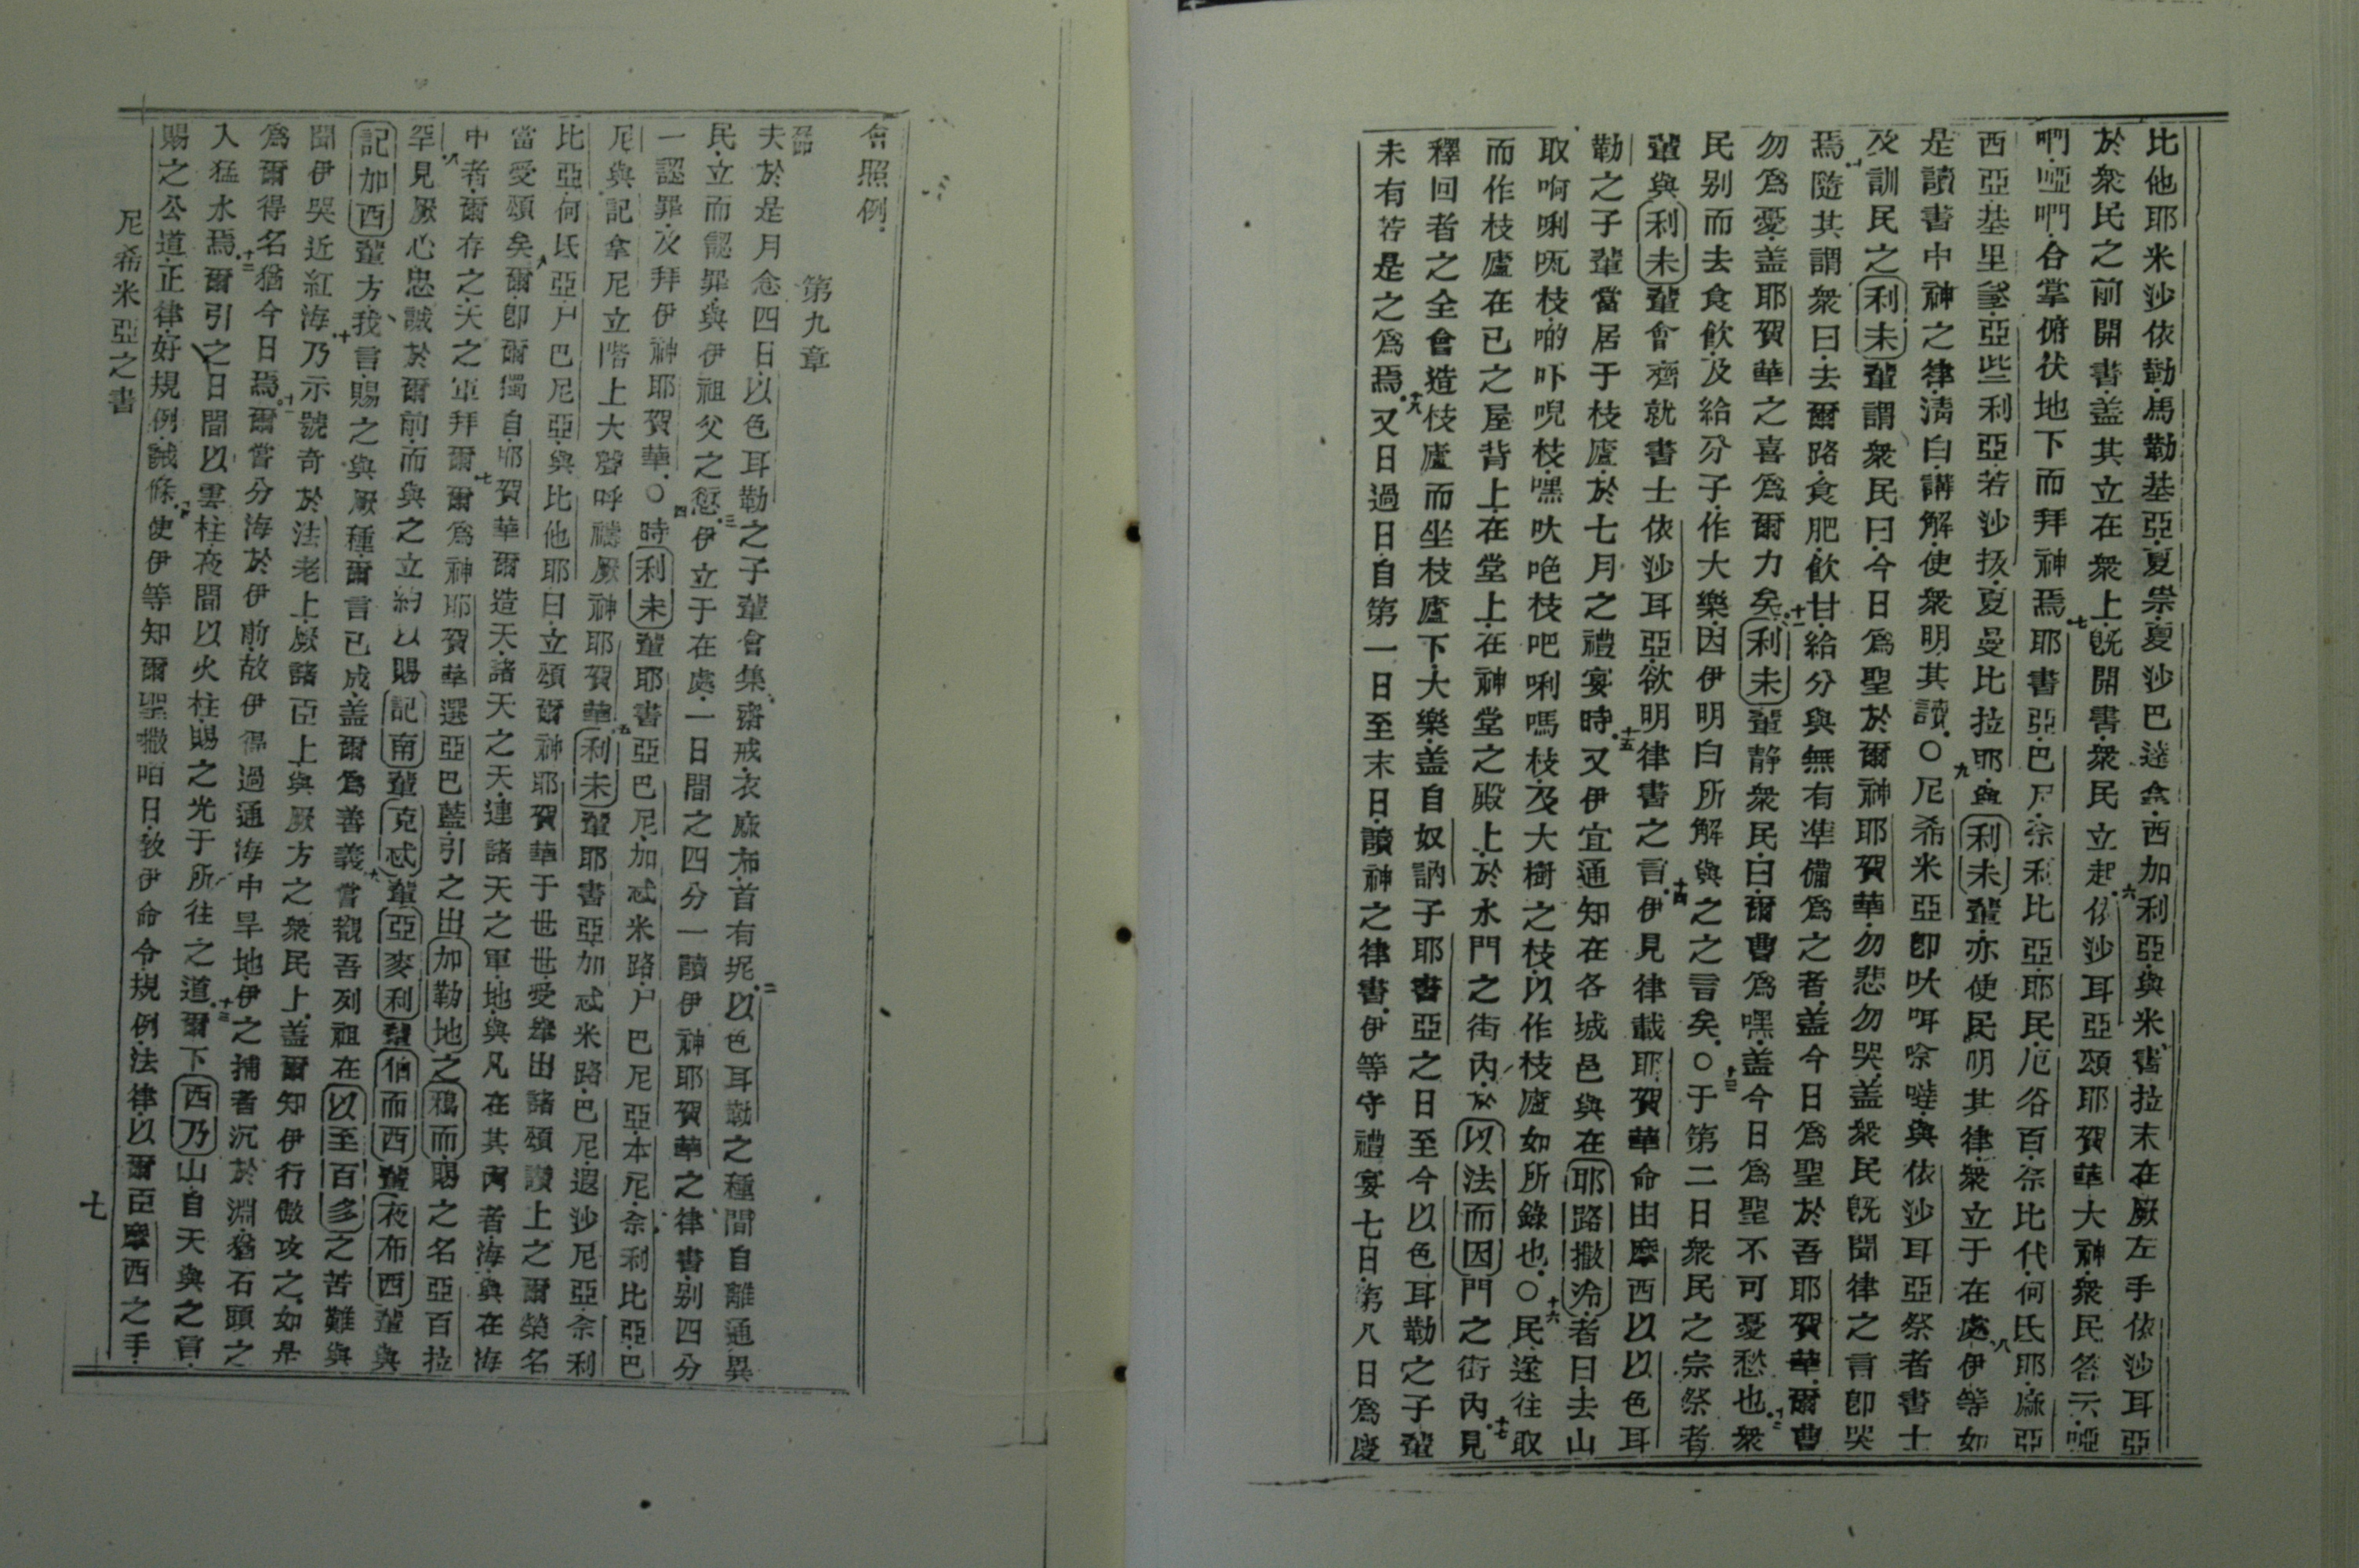 比他耶米沙依勒馬勒基亞夏崇夏沙巴達拿西加利亞與米書拉末在厥左手依沙耳亞
於衆民之前開書盖其立在衆上旣開書衆民立起六依沙耳亞頌耶賀華大神衆民答云啞
啊啞啊合掌俯伏地下而拜神焉七耶書亞巴尼余利比亞耶民厄谷百奈比代何氏耶麻亞
西亞基里大亞些利亞若沙扳夏曼比拉耶與利未輩亦使民明其律衆立于在處八伊等如
是讀書中神之律淸白講解使衆明其讀〇九尼希米亞卽吠咡唦噠與依沙耳亞祭者書士
及訓民之利未輩謂衆民曰今日爲聖於爾神耶賀華勿悲勿哭盖衆民旣聞律之言卽哭
焉十隨其謂衆曰去爾路食肥飮甘給分與無有準備爲之者盖今日爲聖於吾耶賀華爾曹
勿爲憂盖耶賀華之喜爲爾力矣十一利未輩静衆民曰爾曹爲嘿盖今日爲聖不可憂愁也十二衆
民别而去食飮及給分子作大樂因伊明白所解與之之言矣〇十三于第二日衆民之宗祭者
輩與利未輩會齊就書士依沙耳亞欲明律書之言十四伊見律載耶賀華命由摩西以以色耳
勒之子輩當居于枝廬於七月之禮宴時十五又伊宜通知在各城邑與在耶路撒冷者曰去山
取啊唎㕽枝啲吥唲枝嘿吠吧枝吧唎嗎枝及大樹之枝以作枝廬如所錄也〇十六民遂往取
而作枝廬在已之屋背上在堂上在神堂之殿上於水門之街內於以法而因門之街內十七見
釋回者之全會造枝廬而坐枝廬下大樂盖自奴訥子耶書亞之日至今以色耳勒之子輩
未有若是之爲焉十八又日過日自第一日至末日讀神之律書伊等守禮宴七日第八日爲慶
會照例
第九章
夫於是月念四日以色耳勒之子輩會集齋戒衣麻布首有坭二以色耳勒之種間自離通異
民立而認罪與伊祖父之愆三伊立于在處一日間之四分一讀伊神耶賀華之律書别四分
一認罪及拜伊神耶賀華〇四時利未輩耶書亞巴尼加忒米路尸巴尼亞本尼余利比亞巴
尼與記拿尼立階上大聲呼禱厥神耶賀華五利未輩耶書亞加忒米路巴尼遐沙尼亞余利
比亞何氐亞尸巴尼亞與比他耶曰立頌爾神耶賀華于世世受舉出諸頌讚上之爾榮名
當愛頌矣六爾卽爾獨自耶賀華爾造天諸天之天連諸天之軍地與凡在其內者海與在海
中者爾存之天之軍拜爾七爾爲神耶賀華選亞巴藍引之出加勒地之鴉而賜之名亞百拉
罕八見厥心忠誠於爾前而與之立約以賜記南輩克忒輩亞麥利輩伯而西輩夜布西輩與
記加西輩方我言賜之與厥種爾言已成盖爾爲善義九嘗観吾列祖在以至百多之苦難與
聞伊哭近紅海十乃示號奇於法老上厥諸臣上與厥方之衆民上盖爾知伊行傲攻之如是
爲爾得名猶今日焉十一爾嘗分海於伊前故伊得過通海中旱地伊之捕者沉於淵猶石頭之
入猛水焉十二爾引之日間以雲柱夜間以火柱賜之光于所往之道十三爾下西乃山自天與之言
賜之公道正律好規例誡條十四使伊等知爾聖撒咟日敎伊命令規例法律以爾臣摩西之手
尼希米亞之書
七